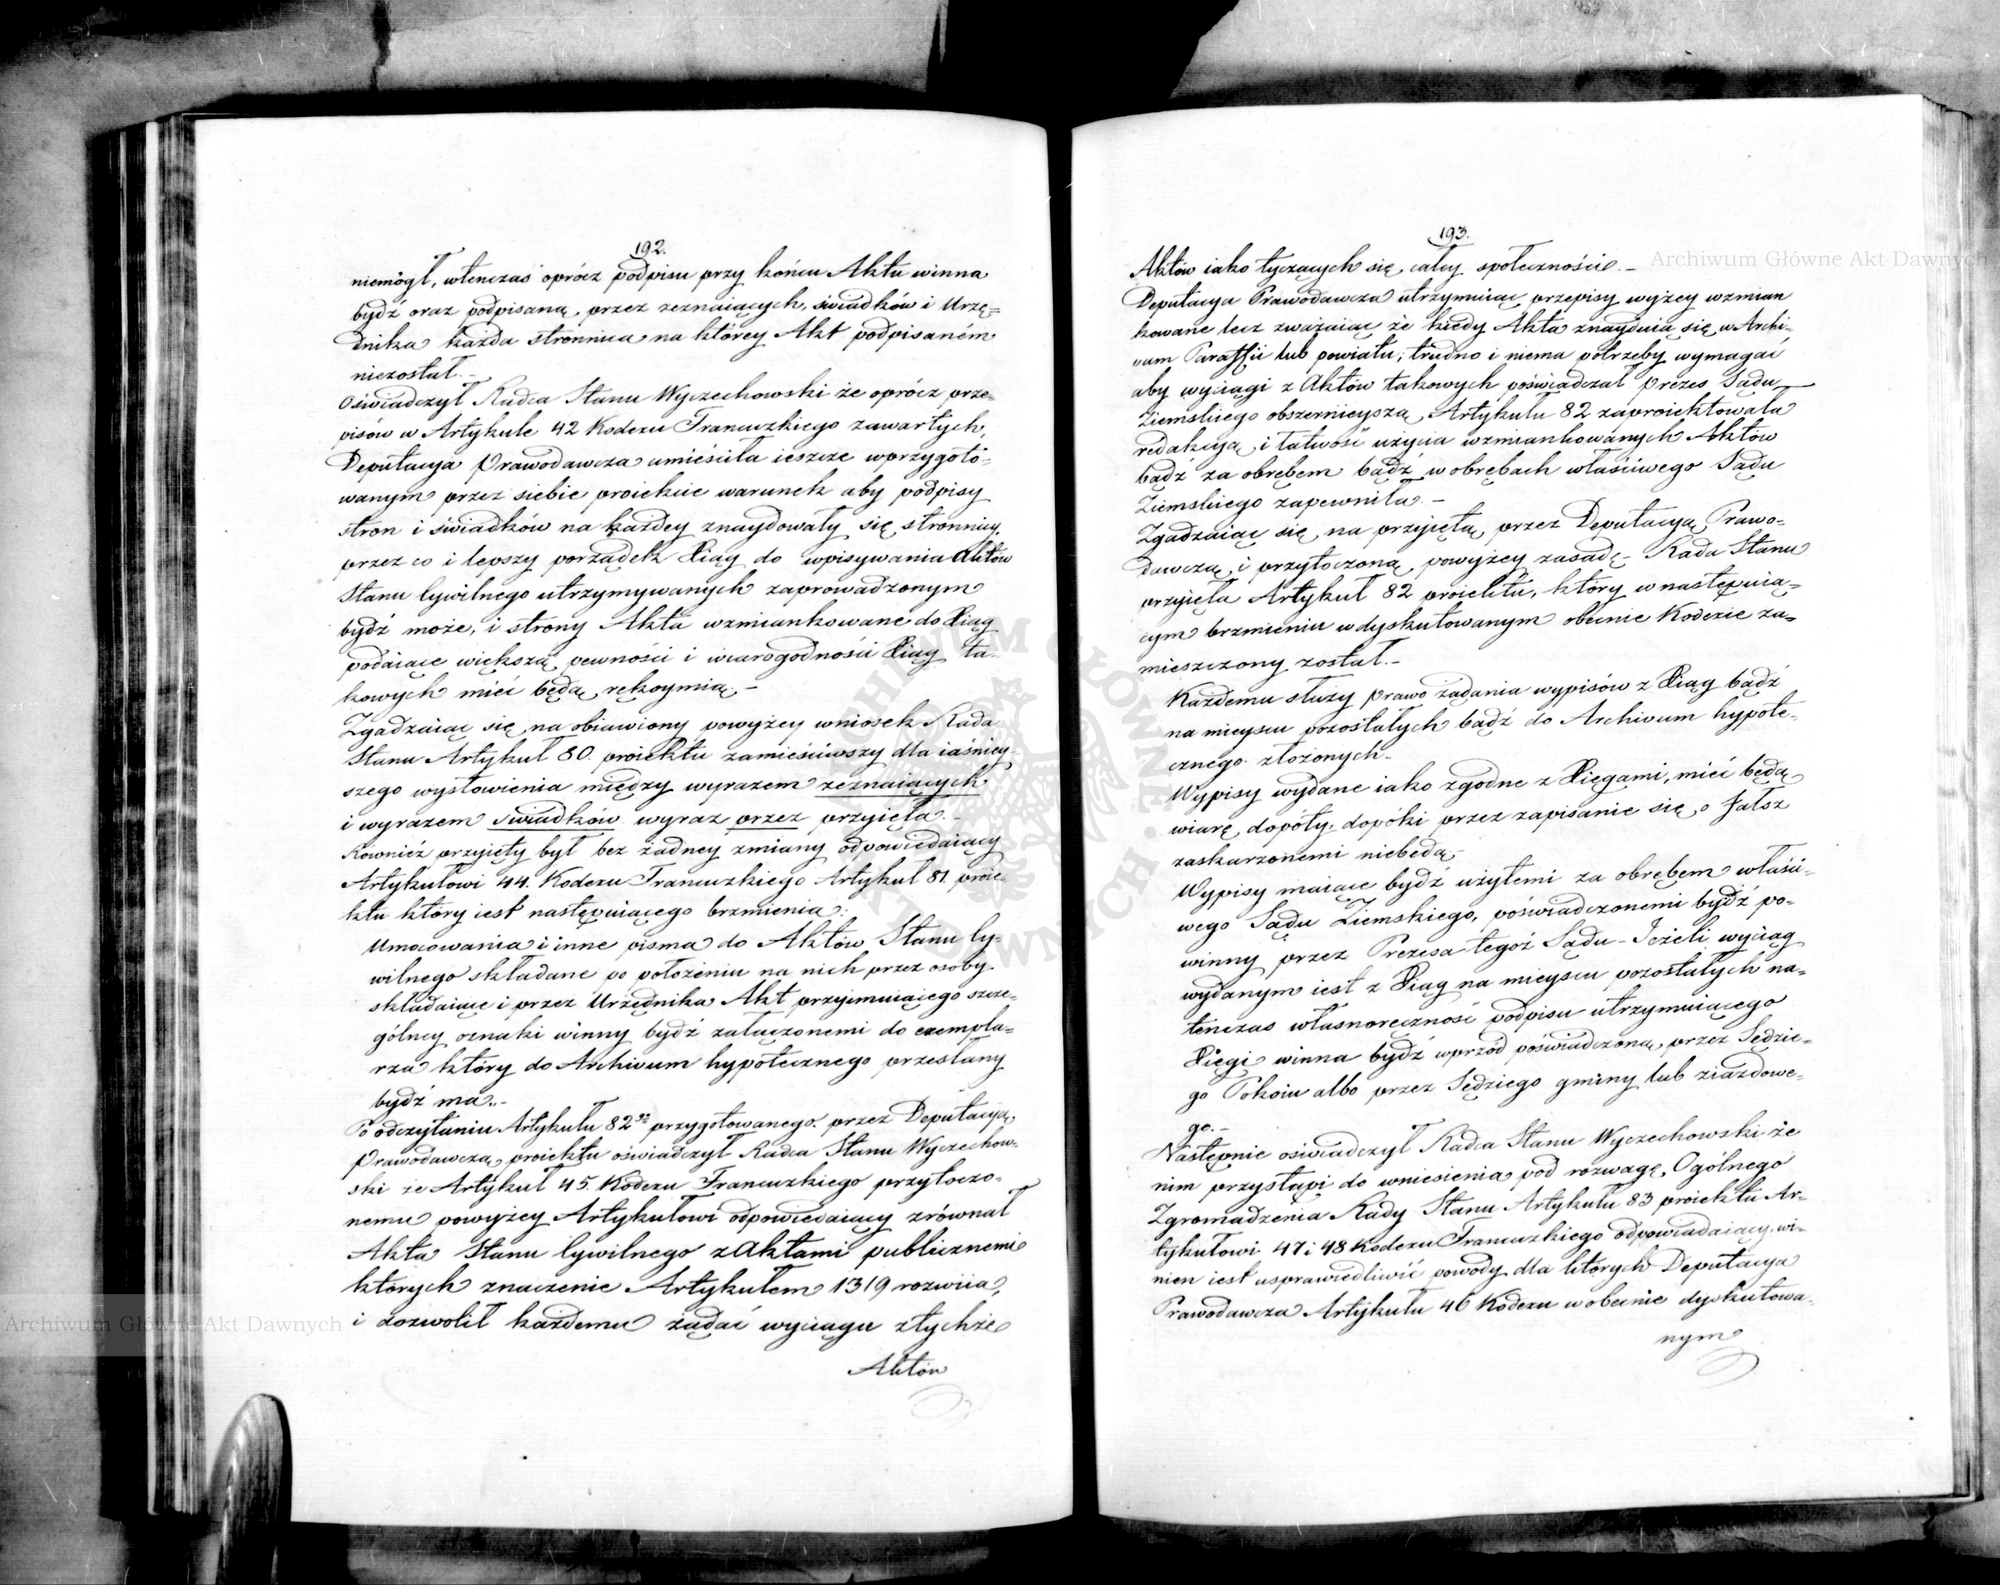 192.
niemógł, wtenczas oprócz podpisu przy końcu Aktu winna
bydź oraz podpisaną przez zeznaiących, świadków i Urzę=
dnika każda stronnica na którey Akt podpisaném
niezostał.-
Oświadczył Radca Stanu Wyczechowski że oprócz prze-
pisów w Artykule 42 Kodexu Francuzkiego zawartych,
Deputacya Prawodawcza umieściła ieszcze w przygoto-
wanym przez siebie proiekcie warunek aby podpisy
stron i świadków na każdey znaydowały się stronnicy,
przez co i lepszy porządek Xiąg do wpisywania Aktów
Stanu Cywilnego utrzymywanych zaprowadzonym
bydź może, i strony Akta wzmiankowane do Xiąg
podaiące większą pewności i wiarogodności Xiąg ta-
kowych mieć będą rękoymią -
Zgadzaiąc się na obiawiony powyżey wniosek Rada
Stanu Artykuł 80. proiektu zamieściwszy dla iaśniey-
szego wysłowienia między wyrazem zeznaiących
i wyrazem świadków wyraz przez przyięła.-
Również przyięty był bez żadney zmiany odpowiedaiący
Artykułowi 44. Kodexu Francuzkiego Artykuł 81. proie-
ktu który iest następuiącego brzmienia:
Umocowania i inne pisma do Aktów Stanu Cy-
wilnego składane po położeniu na nich przez osoby
składaiące i przez Urzędnika Akt przyimuiącego szcze-
gólney oznaki winny bydź załączonemi do exempla-
rza który do Archivum hypotecznego przesłany
bydź ma.-
Po odczytaniu Artykułu 82go przygotowanego przez Deputacyą
Prawodawczą proiektu oświadczył Radca Stanu Wyczechow-
ski że Artykuł 45. Kodexu Francuzkiego przytoczo-
nemu powyżey Artykułowi odpowiedaiący zrównał
Akta Stanu Cywilnego z Aktami publicznemi
których znaczenie Artykułem 1319 rozwiia,
i dozwolił każdemu żądać wyciągu z tychże
Aktów
193.
Aktów iako tyczących się całey społeczności.-
Deputacya Prawodawcza utrzymuiąc przepisy wyżey wzmian
kowane lecz zważaiąc że kiedy Akta znayduią się w Archi-
vum Paraffii lub powiatu; trudno i niema potrzeby wymagać
aby wyciągi z Aktów takowych poświadczał Prezes Sądu
Ziemskiego obszernieyszą Artykułu 82 zaproiektowała
redakcyą i łatwość użycia wzmiankowanych Aktów
bądź za obrębem bądź w obrębach właściwego Sądu
Ziemskiego zapewniła.-
Zgadzaiąc się na przyiętą przez Deputacyą Prawo-
dawczą i przytoczoną powyżey zasadę - Rada Stanu
przyięła Artykuł 82 proiektu, który w następuią-
cym brzmieniu w dyskutowanym obecnie Kodexie za-
mieszczony został.-
Każdemu służy prawo żądania wypisów z Xiąg bądź
na mieyscu pozostałych bądź do Archivum hypote-
cznego złożonych.
Wypisy wydane iako zgodne z Xięgami, mieć będą
wiarę dopóty, dopóki przez zapisanie się o fałsz
zaskarżonemi niebędą,-
Wypisy maiące bydź użytemi za obrębem właści-
wego Sądu Ziemskiego, poświadczonemi bydź po-
winny przez Prezesa tegoż Sądu - Jeżeli wyciąg
wydanym iest z Xiąg na mieyscu pozostałych na-
tenczas własnoręczność podpisu utrzymuiącego
Xięgi winna bydź wprzód poświadczoną przez Sędzie-
go Pokoiu albo przez Sędziego gminy lub ziazdowe-
go.-
Następnie oświadczył Radca Stanu Wyczechowski że
nim przystąpi do wniesienia pod rozwagę Ogólnego
Zgromadzenia Rady Stanu Artykułu 83 proiektu Ar-
tykułowi 47 i 48 Kodexu Francuzkiego odpowiadaiący, wi-
nien iest usprawiedliwić powody dla których Deputacya
Prawodawcza Artykułu 46 Kodexu w obecnie dyskutowa-
nym
Archiwum Główne Akt Dawnych
Archiwum Główne Akt Dawnych